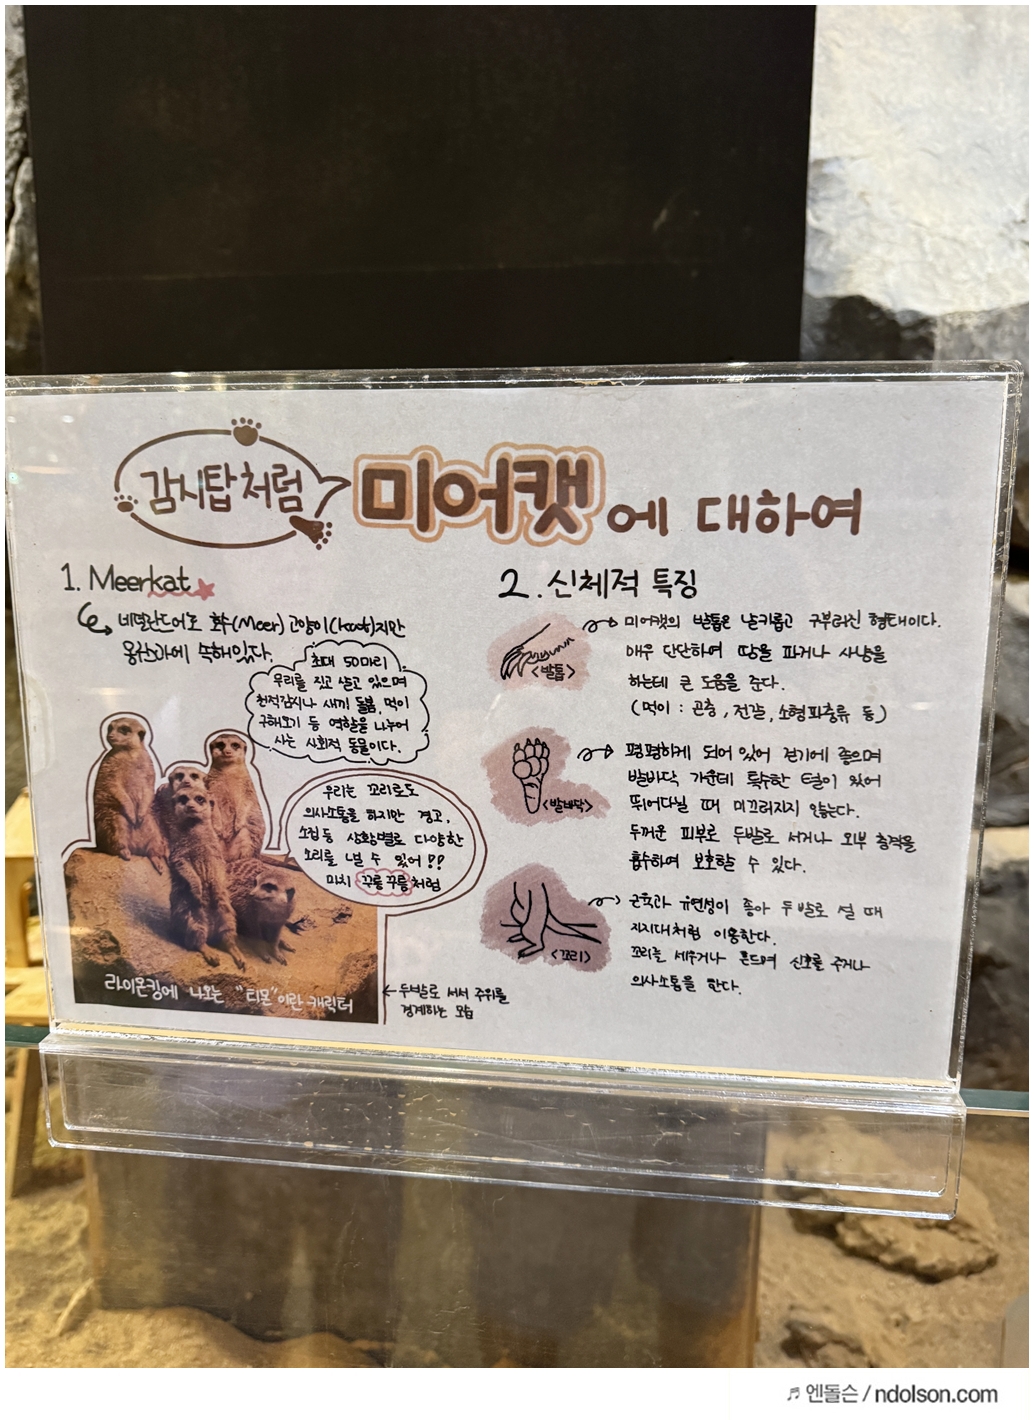 감시탑처럼 미어캣에 대하여
1. Meerkat
네덜란드어로 호수(Meer) 고양이(kat)지만
몽구스과에 속해있다.
최대 50마리
무리를 짓고 살고 있으며
천적감시나 새끼 돌봄, 먹이
구해오기 등 역할을 나누어
사는 사회적 동물이다.
우리는 꼬리로도
의사소통을 하지만 경고,
소집 등 상황별로 다양한
소리를 낼 수 있어!!
마치 꾸륵꾸륵처럼
라이온킹에 나오는 "티몬"이란 캐릭터
← 두발로 서서 주위를
경계하는 모습
2. 신체적 특징
<발톱>
미어캣의 발톱은 날카롭고 구부러진 형태이다.
매우 단단하여 땅을 파거나 사냥을
하는데 큰 도움을 준다.
(먹이 : 곤충, 전갈, 소형파충류 등)
<발바닥>
평평하게 되어 있어 걷기에 좋으며
발바닥 가운데 특수한 털이 있어
뛰어다닐 때 미끄러지지 않는다.
두꺼운 피부로 두발로 서거나 외부 충격을
흡수하여 보호할 수 있다.
<꼬리>
근육과 유연성이 좋아 두발로 설 때
지지대처럼 이용한다.
꼬리를 세우거나 흔드며 신호를 주거나
의사소통을 한다.
♬ 엔돌슨 / ndolson.com